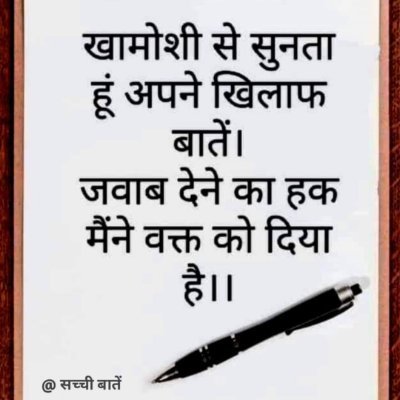 खामोशी से सुनता
हूं अपने खिलाफ
बातें।
जवाब देने का हक
मैंने वक्त को दिया
है।।
@ सच्ची बातें